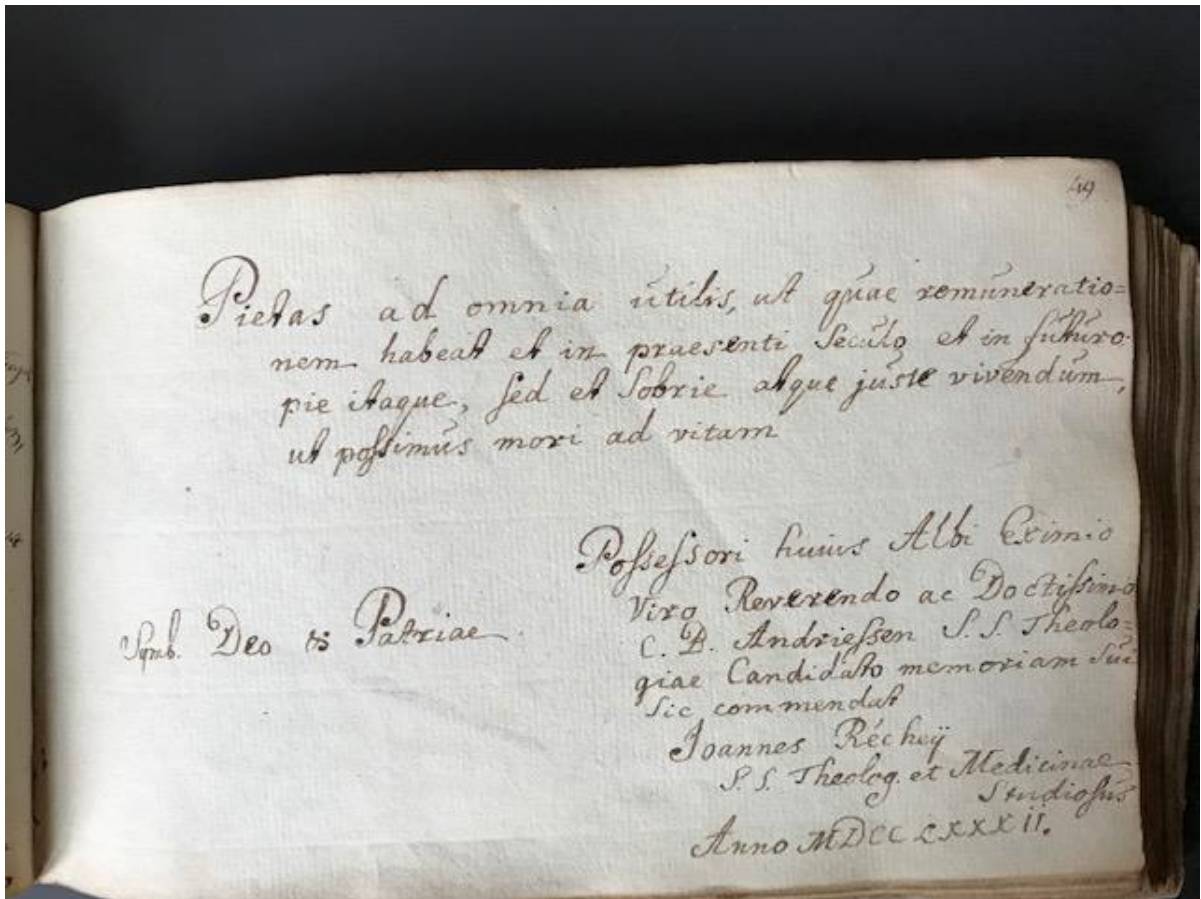 49
Pietas ad omnia utilis, ut quae remuneratio=
nem habeat et in praesenti seculo et in futuro.
pie itaque, sed et sobrie atque juste vivendum,
ut possimus mori ad vitam
Possessori huius Albi Eximio
Viro Reverendo ac Doctissimo
C. B. Andriessen S. S. Theolo=
giae Candidato memoriam sui
sic commendat
Joannes Réchey
S. S. Theolog. et Medicinae
Studiosus
Anno MDCCLXXXII.
Symb. Deo & Patriae